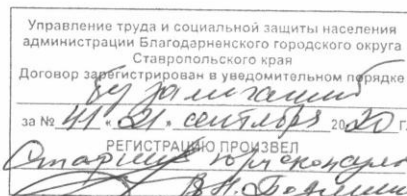 Управление труда и социальной защиты населения
администрации Благодарненского городского округа
Ставропольского края
Договор зарегистрирован в уведомительном порядке
без замечаний
за № 41 «21» сентября 2020 г.
РЕГИСТРАЦИЮ ПРОИЗВЕЛ
Старший юрисконсульт
В.Н.